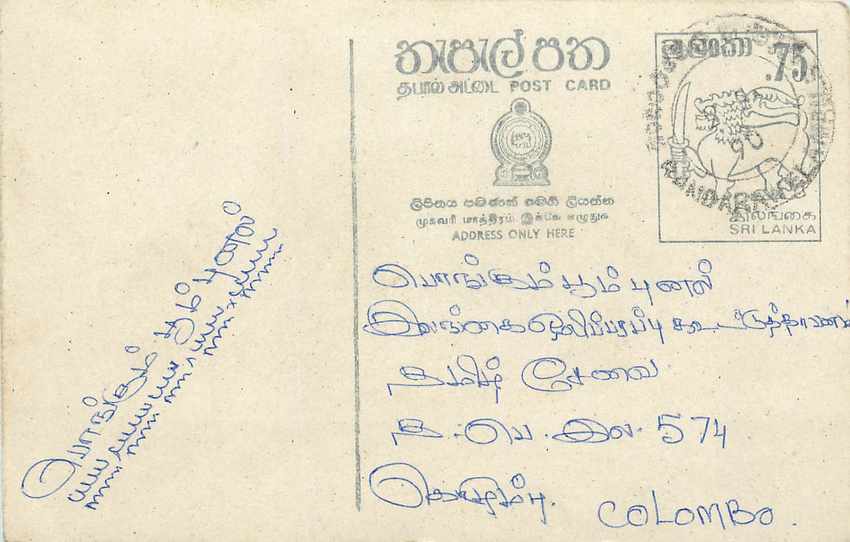 තැපැල් පත
தபால் அட்டை POST CARD
ලිපිනය පමණක් මෙහි ලියන්න
முகவரி மாத்திரம் இங்கே எழுதுக
ADDRESS ONLY HERE
ශ්‍රී ලංකා .75
90
இலங்கை
SRI LANKA
பொங்கும் பூம் புனல்
பொங்கும் பூம் புனல்
இலங்கை ஒலிபரப்பு கூட்டுத்தாபனம்
தமிழ் சேவை
த. பெ. இல. 574
கொழும்பு. COLOMBO.